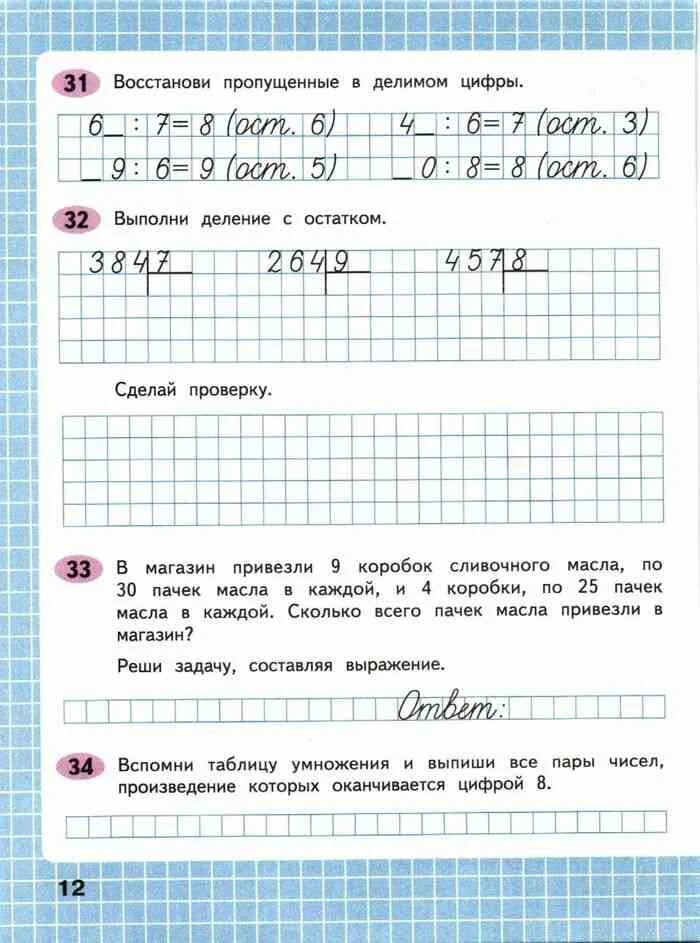 31 Восстанови пропущенные в делимом цифры.
6_ : 7= 8 (ост. 6) 4_ : 6= 7 (ост. 3)
_ 9 : 6= 9 (ост. 5) _ 0 : 8= 8 (ост. 6)
32 Выполни деление с остатком.
384 7 264 9 457 8
Сделай проверку.
33 В магазин привезли 9 коробок сливочного масла, по
30 пачек масла в каждой, и 4 коробки, по 25 пачек
масла в каждой. Сколько всего пачек масла привезли в
магазин?
Реши задачу, составляя выражение.
Ответ:
34 Вспомни таблицу умножения и выпиши все пары чисел,
произведение которых оканчивается цифрой 8.
12